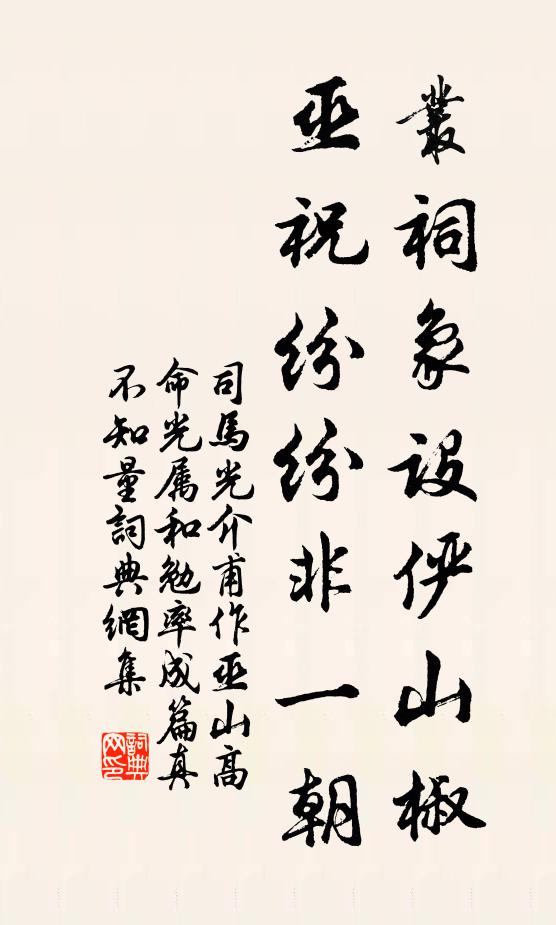 叢祠象設儼山椒
巫祝紛紛非一朝
司馬光介甫作巫山高
命光属和勉率成篇真
不知量詞典網集
詞典網印